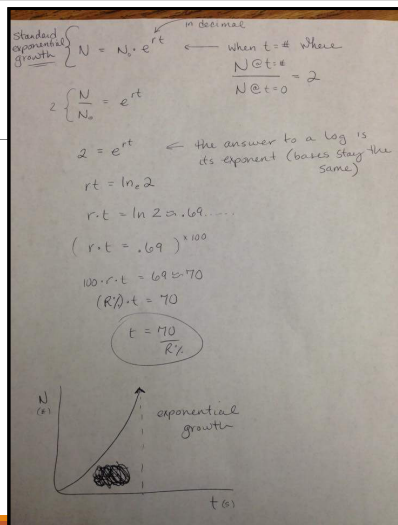 in decimal
standard exponential growth { N = N₀ · e^rt ← when t = # where
N@t=# / N@t=0 = 2
2 { N/N₀ = e^rt
2 = e^rt ← the answer to a log is
its exponent (bases stay the
same)
rt = lnₑ 2
r·t = ln 2 ≈ .69......
( r·t = .69 )^×100
100·r·t = 69 ≈ 70
(R%)·t = 70
t = 70/R%
N
exponential
growth
t (s)